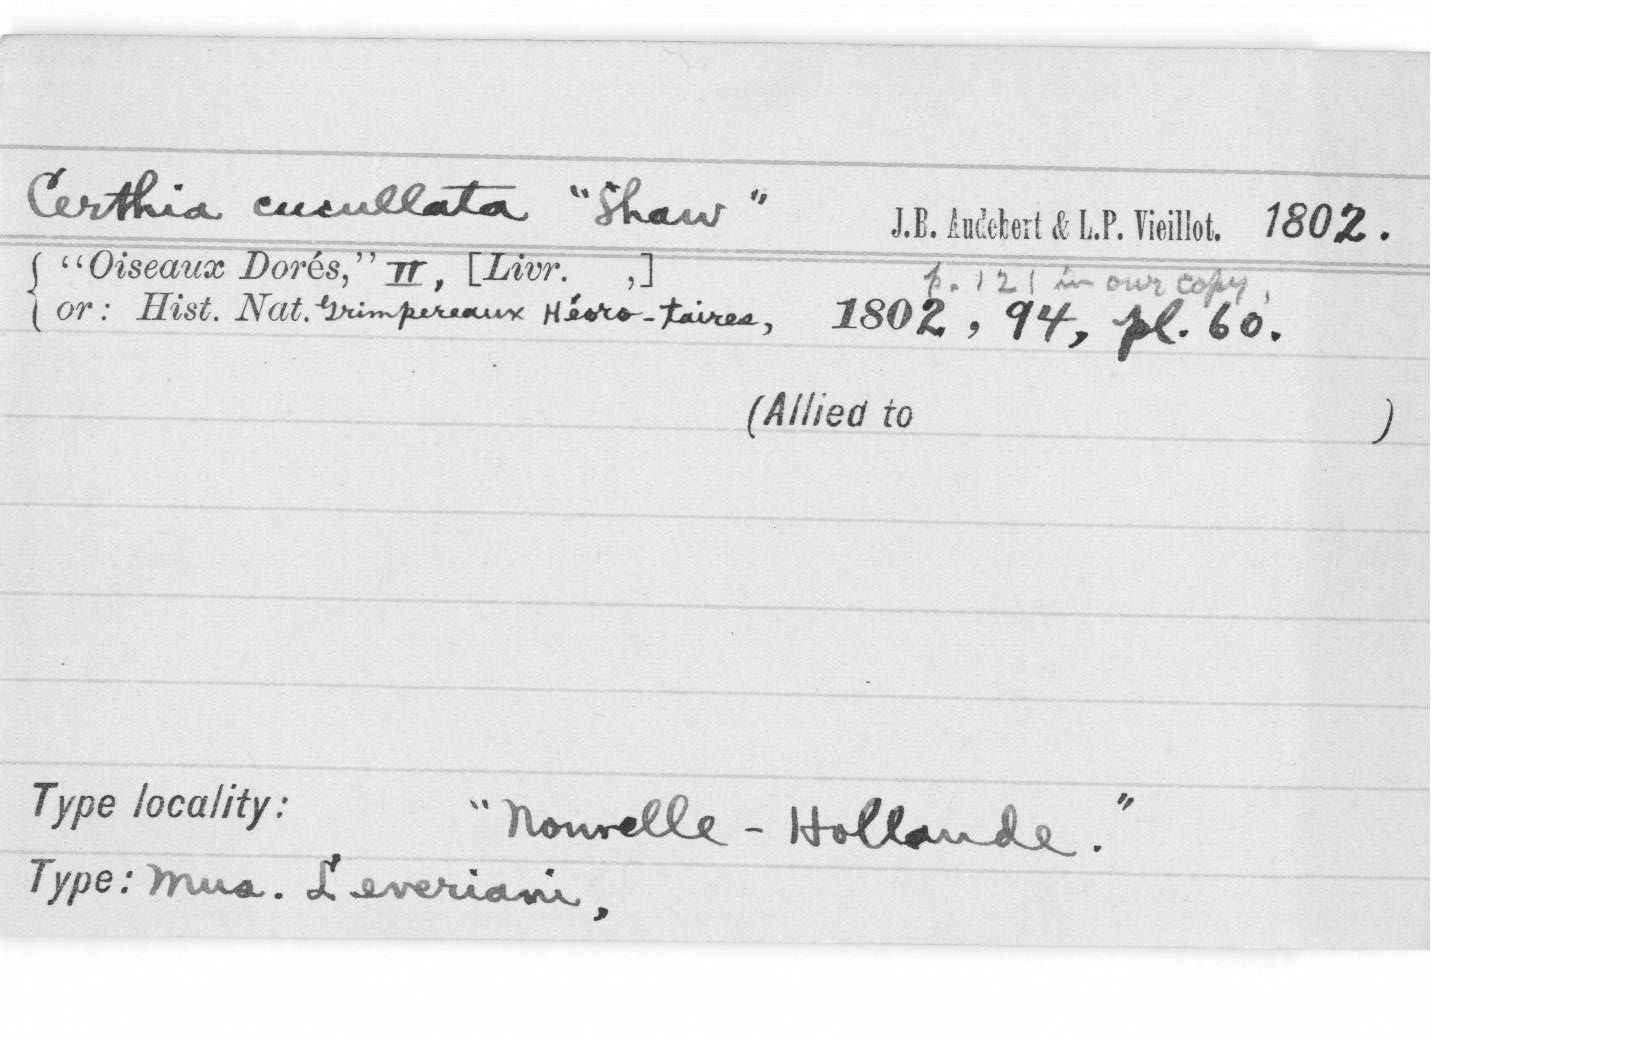 Certhia cucullata "Shaw" J.B. Audebert & L.P. Vieillot. 1802.
"Oiseaux Dorés," II, [Livr. ,]
p. 121 in our copy,
or: Hist. Nat. Grimpereaux Héoro-taires, 1802, 94, pl. 60.
(Allied to )
Type locality: "Nouvelle-Hollande."
Type: Mus. Leveriani,